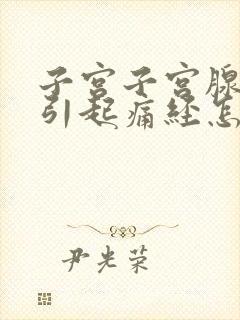 子宫子宫腺
引起痛经怎
尹光荣